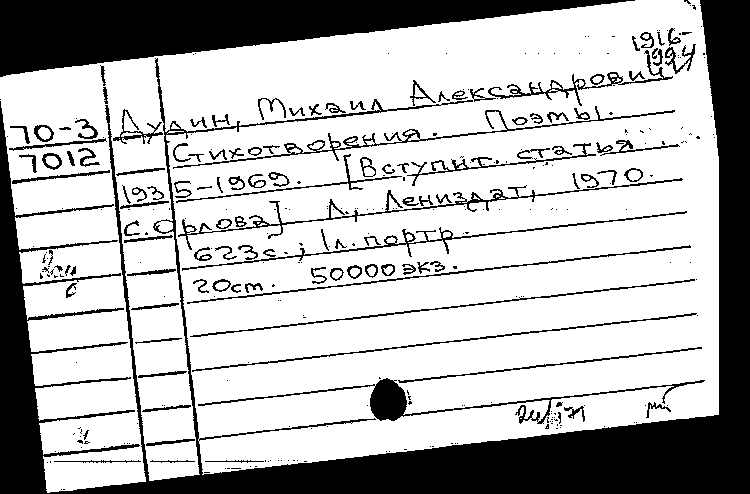 1916-
1994
70-3 Дудин, Михаил Александрович
7012 Стихотворения. Поэмы.
1935-1969. [Вступит. статья
С. Орлова] Л., Лениздат, 1970.
623с.; 1л. портр.
20см. 50000 экз.